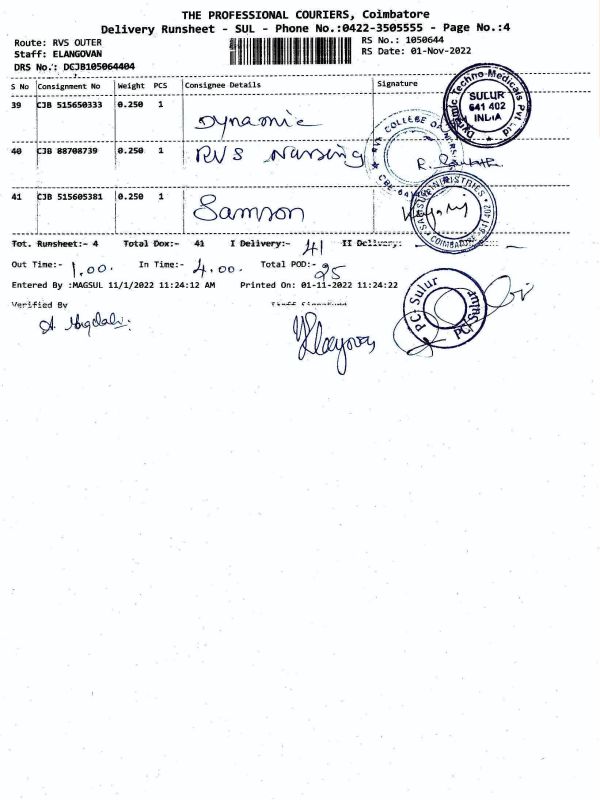 THE PROFESSIONAL COURIERS, Coimbatore
Delivery Runsheet - SUL - Phone No.:0422-3505555 - Page No.:4
Route: RVS OUTER
RS No.: 1050644
Staff: ELANGOVAN
RS Date: 01-Nov-2022
DRS No.: DCJB105064404
S No Consignment No Weight PCS Consignee Details Signature
39 CJB 515650333 0.250 1 Dynamic
Dynamic Techno Medicals Pvt Ltd
SULUR
641 402
INDIA
40 CJB 88708739 0.250 1 RVS Nursing
RVS COLLEGE OF
41 CJB 515605381 0.250 1 Samson
COIMBATORE
Tot. Runsheet:- 4 Total Dox:- 41 I Delivery:- 41 II Delivery: -
Out Time:- 1.00. In Time:- 4.00. Total POD:- 25
Entered By :MAGSUL 11/1/2022 11:24:12 AM Printed On: 01-11-2022 11:24:22
Verified By
PC: Sulur
PC: Sulur